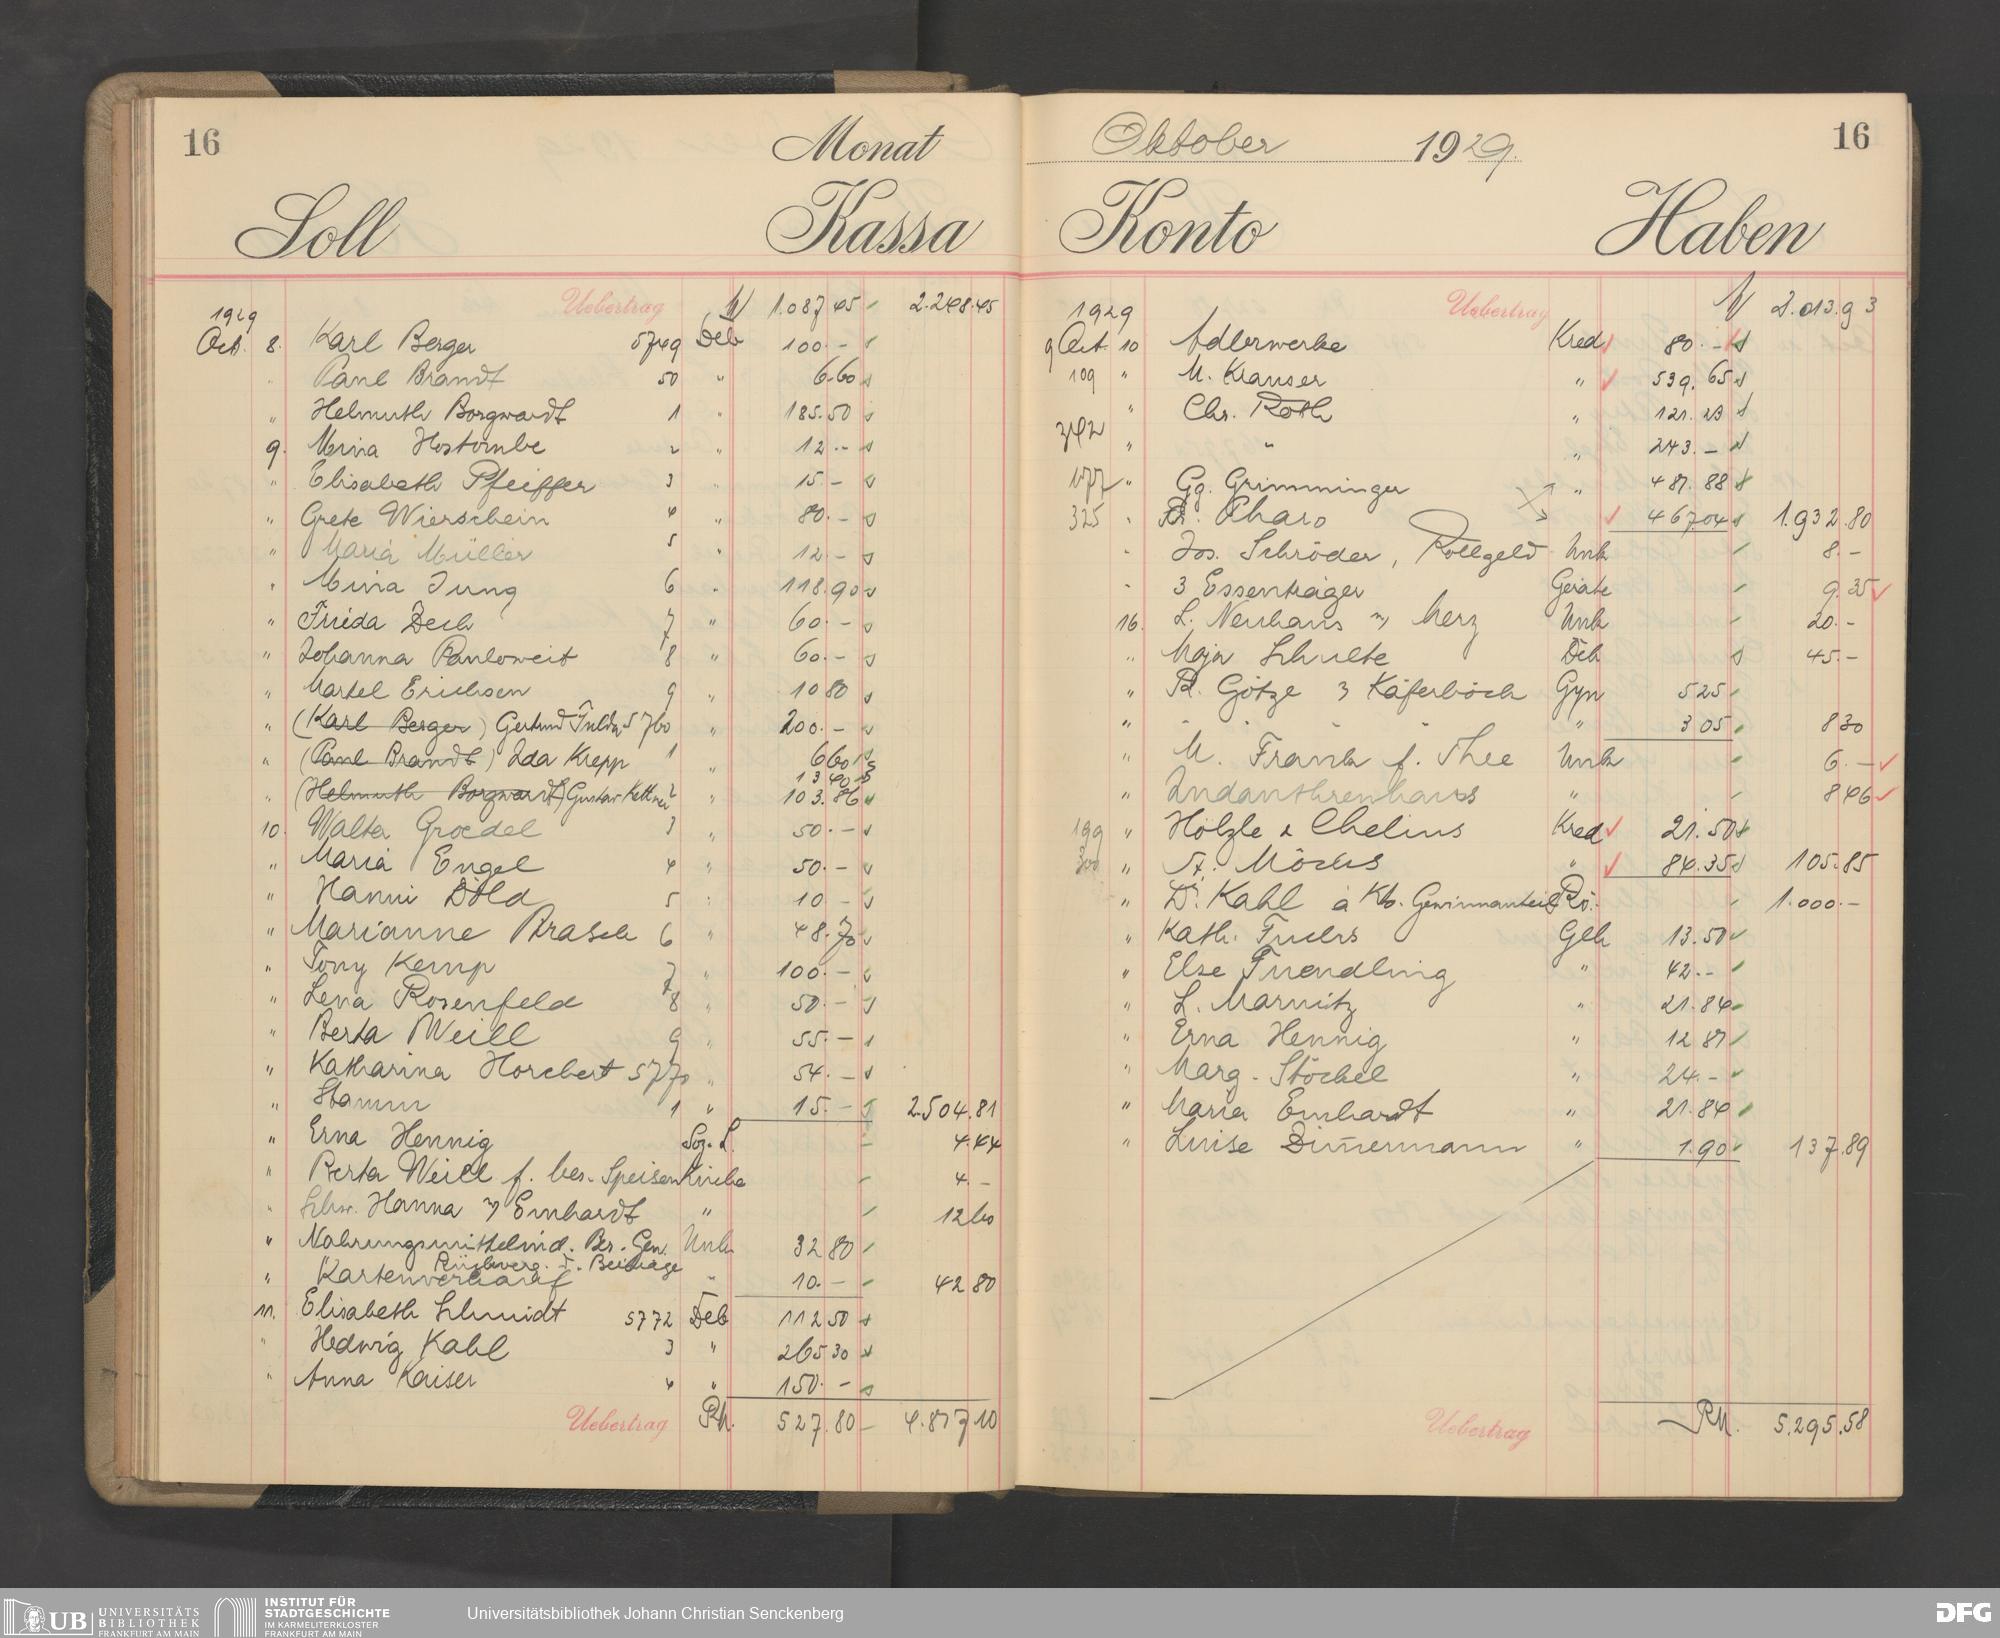 16
Monat
Soll
Kassa
1929 Uebertrag 1.087.45 2.248.45
Oct. 8. Karl Berger 5749 Deb 100.-
" Paul Brandt 50 " 6.60
" Helmuth Borgwardt 1 " 185.50
9. Mina Hostombe 2 " 12.-
" Elisabeth Pfeiffer 3 " 15.-
" Grete Wierschein 4 " 80.-
" Maria Müller 5 " 12.-
" Mina Jung 6 " 118.90
" Frieda Dech 7 " 60.-
" Johanna Pauloweit 8 " 60.-
" Martel Erichsen 9 " 10 80
" (Karl Berger) Gertrud Fulda 5760 " 200.-
" (Paul Brandt) Ida Krepp 1 " 6 60
" (Helmuth Borgwardt) Gustav Kettner 2 " 103.86
10. Walter Groedel 3 " 50.-
" Maria Engel 4 " 50.-
" Hanni Döld 5 " 10 -
" Marianne Prasch 6 " 48.70
" Tony Kemp 7 " 100.-
" Lena Rosenfeld 8 " 50.-
" Berta Weill 9 " 55.-
" Katharina Horchert 5770 " 54.-
" Stamm 1 " 15.- 2.504.81
" Erna Hennig Soz. L. 4.44
" Berta Weill f. bes. Speisen Küche 4.-
" Schw. Hanna & Emhardt " 12 60
" Nahrungsmittelind. Ber. Gen. Unk 32 80
Rückverg. f. Beiträge
" Kartenverkauf " 10.- 42 80
11. Elisabeth Schmidt 5772 Deb 112 50
" Hedwig Kahl 3 " 265 30
" Anna Kaiser 4 " 150.-
Uebertrag RM. 527.80 4.817 10
Oktober 1929.
16
Konto
Haben
1929 Uebertrag 2.013.93
9 Oct. 10 Adlerwerke Kred 80.-
109 " M. Krauser " 539.65
" Chr. Roth " 121.23
342 " " " 243.-
177 " Gg. Grimminger " 481.88
325 " Pharo 467.04 1.932.80
" Jos. Schröder, Rollgeld Unk 8.-
" 3 Essenträger Geräte 9.35
16. L. Neuhaus & Merz Unk 20.-
" Maja Schulte Deb 45.-
" R. Götze 3 Käferböck Gyn 5 25
" " " " " 3 05 8 30
" M. Frank f. Thee Unk 6.-
" Indanthrenhaus " 8 46
199 " Hölzle & Chelius Kred 21.50
300 " A. Möcks " 84.35 105.85
" Dr. Kahl à Kto. Gewinnanteil Rö. 1.000.-
" Kath. Fuchs Geh 13.50
" Else Fruendling " 42.-
" L. Marnitz " 21.84
" Erna Hennig " 12 81
" Marg. Stöckel " 24.-
" Maria Emhardt " 21.84
" Luise Dim̄ermann " 1.90 137.89
Uebertrag RM. 5.295.58
UB UNIVERSITÄTS BIBLIOTHEK FRANKFURT AM MAIN
INSTITUT FÜR STADTGESCHICHTE IM KARMELITERKLOSTER FRANKFURT AM MAIN
Universitätsbibliothek Johann Christian Senckenberg
DFG